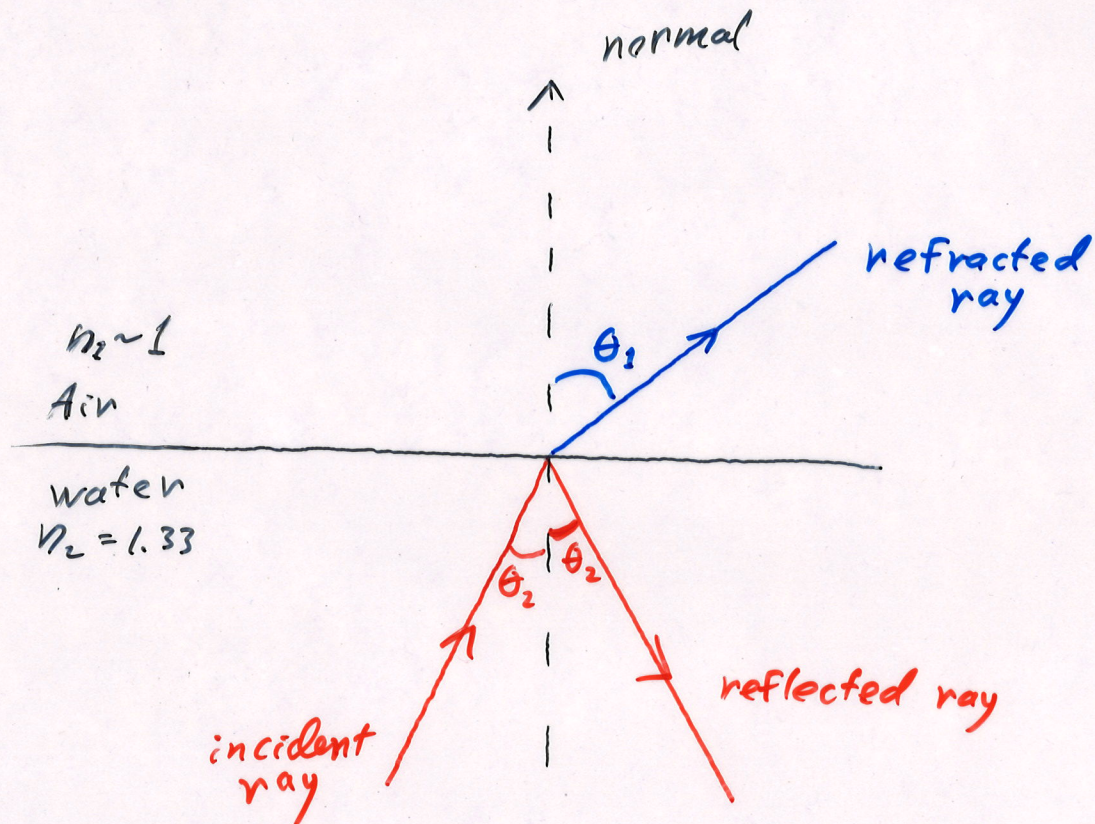 normal
refracted
ray
θ₁
n₂~1
Air
water
n₂ = 1.33
θ₂
θ₂
reflected ray
incident
ray